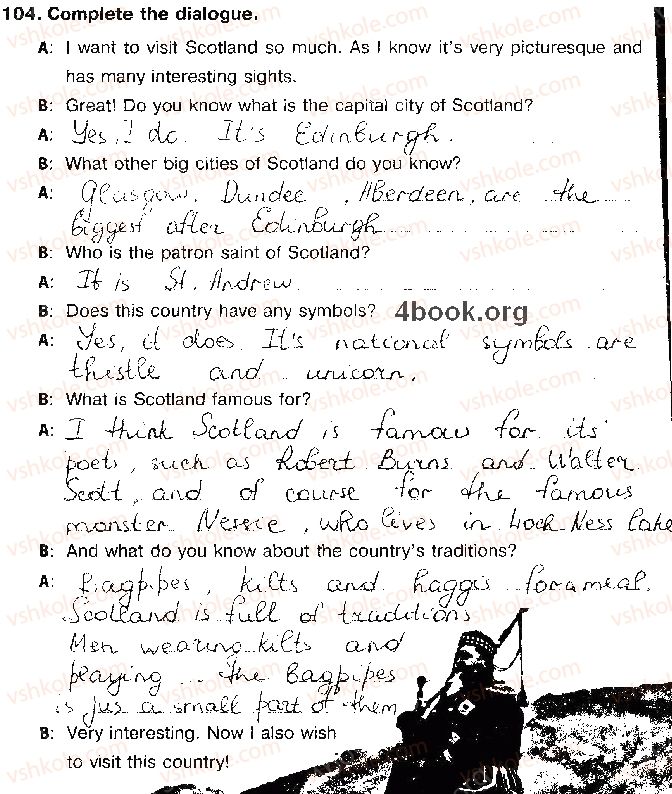 104. Complete the dialogue.
A: I want to visit Scotland so much. As I know it's very picturesque and
has many interesting sights.
B: Great! Do you know what is the capital city of Scotland?
A: Yes, I do. It's Edinburgh.
B: What other big cities of Scotland do you know?
A: Glasgow, Dundee, Aberdeen, are the
biggest after Edinburgh
B: Who is the patron saint of Scotland?
A: It is St. Andrew.
B: Does this country have any symbols? 4book.org
A: Yes, it does. It's national symbols are
thistle and unicorn.
B: What is Scotland famous for?
A: I think Scotland is famow for its
poets, such as Robert Burns and Walter
Scott, and of course for the famous
monster Nessie, who lives in Loch-Ness lake
B: And what do you know about the country's traditions?
A: Bagpipes, kilts and haggis for a meal.
Scotland is full of traditions
Men wearing kilts and
playing the bagpipes
is jus a small part of them
B: Very interesting. Now I also wish
to visit this country!